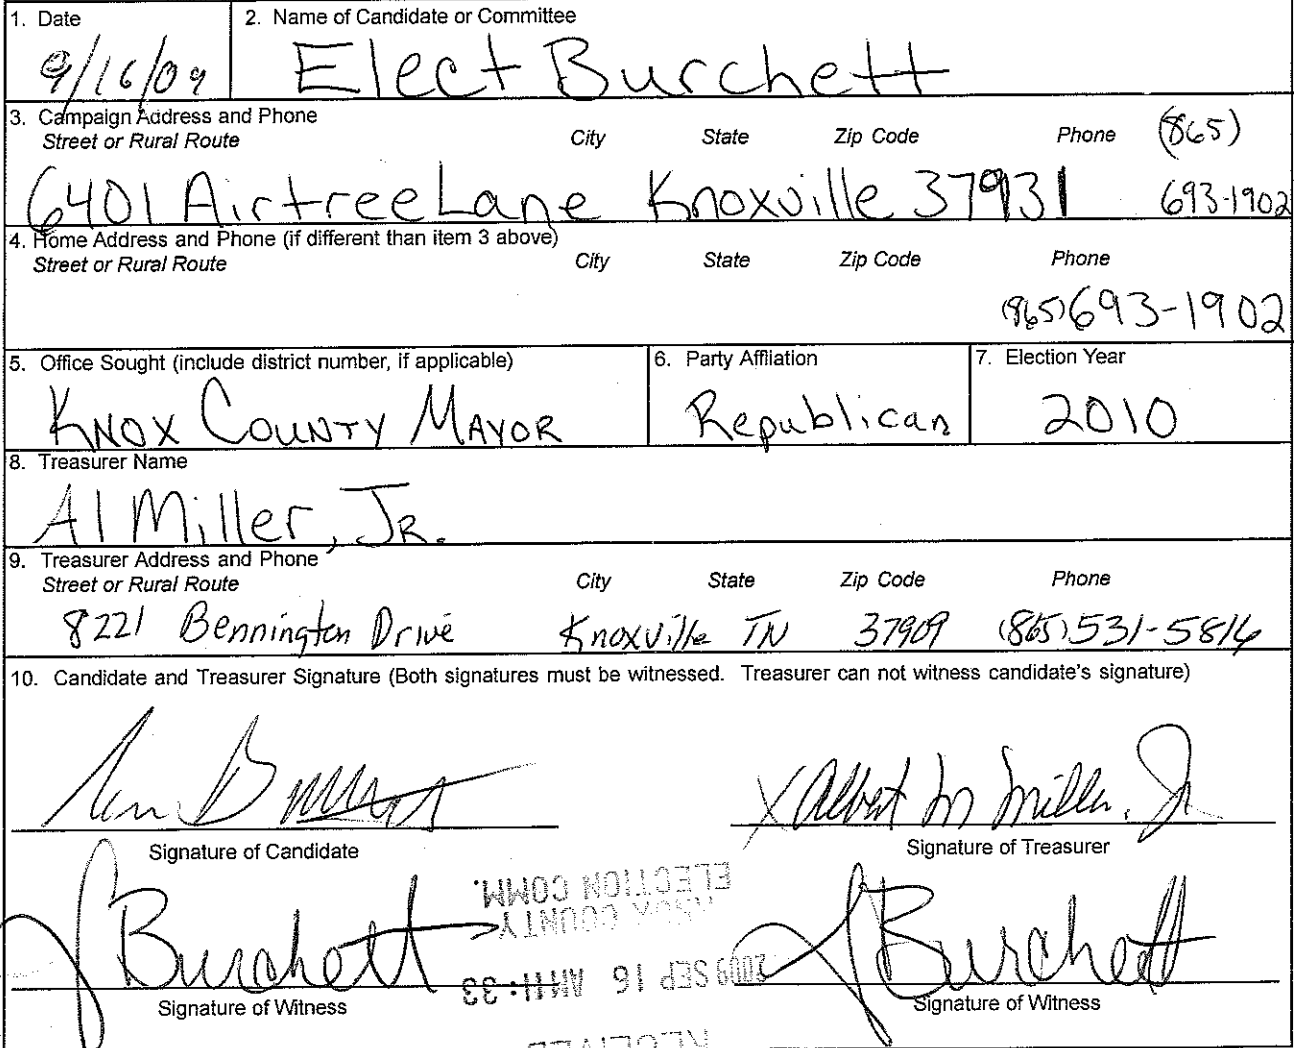 1. Date
2. Name of Candidate or Committee
9/16/09
Elect Burchett
3. Campaign Address and Phone
Street or Rural Route City State Zip Code Phone (865)
6401 Airtree Lane Knoxville 37931 693-1902
4. Home Address and Phone (if different than item 3 above)
Street or Rural Route City State Zip Code Phone
(865) 693-1902
5. Office Sought (include district number, if applicable)
6. Party Affliation
7. Election Year
KNOX COUNTY MAYOR
Republican
2010
8. Treasurer Name
Al Miller, JR.
9. Treasurer Address and Phone
Street or Rural Route City State Zip Code Phone
8221 Bennington Drive Knoxville TN 37909 (865) 531-5816
10. Candidate and Treasurer Signature (Both signatures must be witnessed. Treasurer can not witness candidate's signature)
X Albert M Miller, Jr
Signature of Candidate
Signature of Treasurer
J Burchett
J Burchett
Signature of Witness
Signature of Witness
RECEIVED
2009 SEP 16 AM 11:33
KNOX COUNTY
ELECTION COMM.